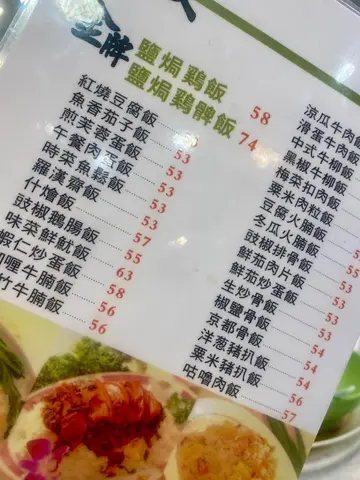 金牌
鹽焗鷄飯 58
鹽焗鷄髀飯 74
紅燒豆腐飯
魚香茄子飯 53
煎芙蓉蛋飯 53
午餐肉蛋飯 53
時菜魚鬆飯 53
羅漢齋飯 53
什燴飯 53
豉椒鵝腸飯 57
味菜鮮魷飯 55
蝦仁炒蛋飯 63
咖喱牛腩飯 58
竹牛腩飯 56
56
涼瓜牛肉飯
滑蛋牛肉飯
中式牛柳飯
黑椒牛柳飯
梅菜扣肉飯
粟米肉粒飯
豆腐火腩飯
冬瓜火腩飯
豉椒排骨飯
鮮茄肉片飯
鮮茄炒蛋飯
生炒骨飯 53
椒鹽骨飯 53
京都骨飯 54
洋葱豬扒飯 54
粟米豬扒飯 54
咕嚕肉飯 56
57